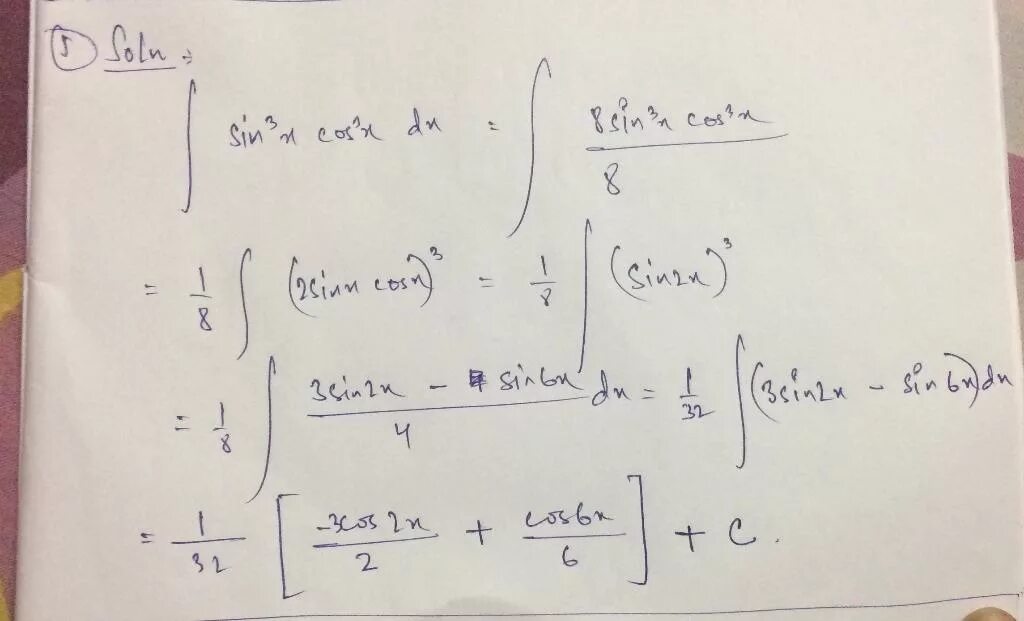 5 Soln :
∫ sin³x cos³x dx = ∫ 8 sin³x cos³x / 8
= 1/8 ∫ (2sinx cosx)³ = 1/8 ∫ (sin2x)³
= 1/8 ∫ (3sin2x - sin6x)/4 dx = 1/32 ∫ (3sin2x - sin6x) dx
= 1/32 [ -3cos2x/2 + cos6x/6 ] + C.